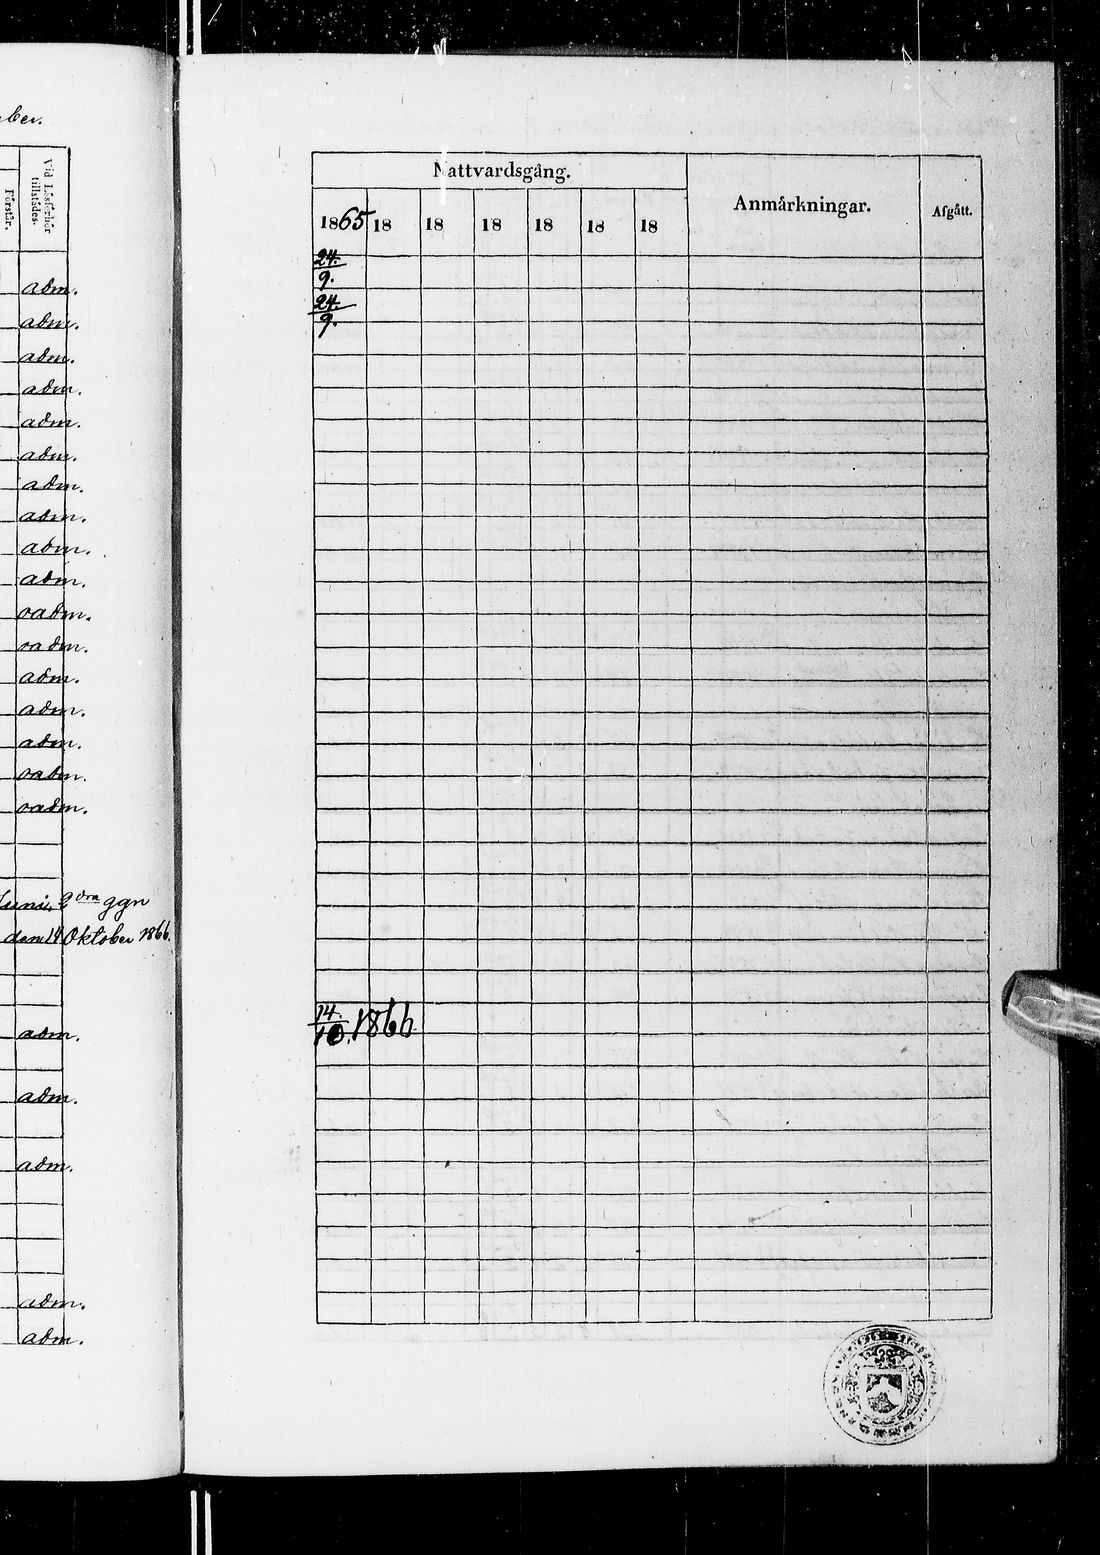 ber.
Vid Läsförhör
tillstädes.
Förstår.
adm.
adm.
adm.
adm.
adm.
adm.
adm.
adm.
adm.
adm.
oadm.
oadm.
adm.
adm.
adm.
oadm.
oadm.
Juni, 2dra ggn
den 14 Oktober 1866.
adm.
adm.
adm.
adm.
adm.
Nattvardsgång.
Anmärkningar.
Afgått.
1865 18 18 18 18 18 18
24.
9.
24.
9.
14.
10. 1866